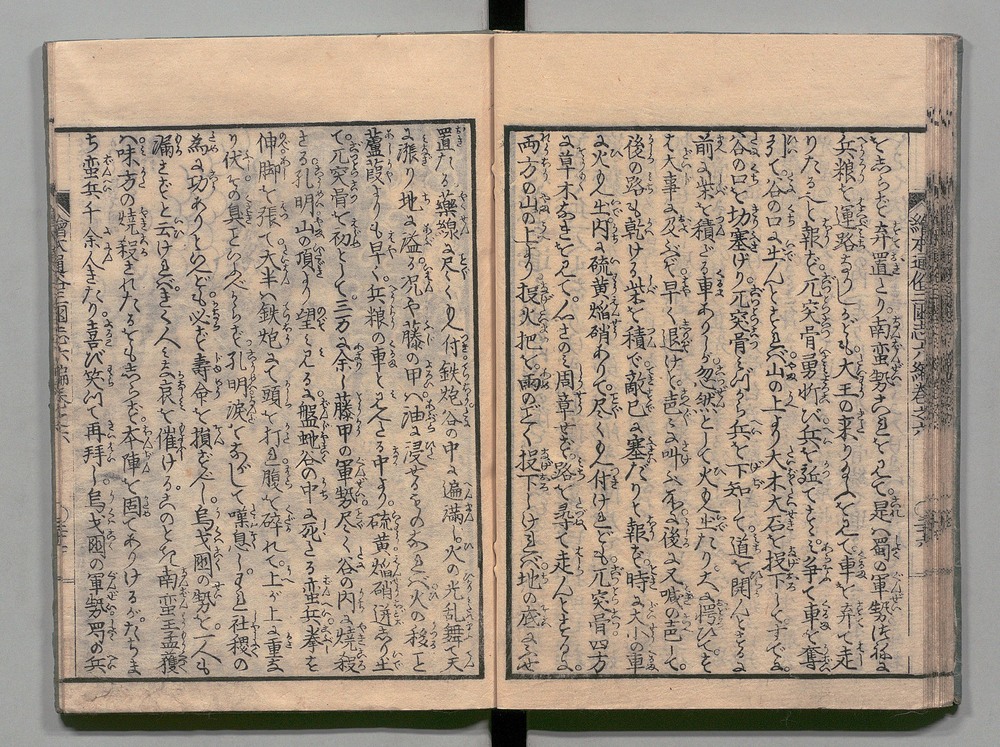 弃置たり。南蛮勢これを見て。是蜀の軍勢
兵粮を運路なりしかども。大王の来りたまふを見て車を弃て走
りたるべしと報ず。兀突骨 悦び兵を 争て車を奪
引て谷の口に出んとすれば山の上より大木大石を投下してすでに
谷の口を切塞げり兀突骨みづから兵を下知して。道を開んとするに
前に柴を積たる車ありしが忽然として火もえ出たり大に愕ひてそ
は大事に及べぞ早く退けと 叫ぶ 後に又喊の声して。
後の路も乾ける柴を積で敵已に塞だりと報ず時に大小の車
に火もえ出内に硫黄焔硝ありて。尽くもえ付けれども兀突骨四方
に草木なきを見て。心さのみ周章せず。路を尋て走んとするに。
両方の山の上より投火把を。雨のごとく投下しければ地の底にふせ
置たる薬線に尽くもえ付鉄炮谷の中に遍満し火の光乱舞て天
に漲り地に溢る況や藤の甲は油に浸せるものなれば火の移こと
蘆葭よりも早く。兵粮の車と見へたる中より。硫黄焔硝迸しり出
て。兀突骨を初として三万に余し藤甲の軍勢尽く谷の内に焼殺
さる。孔明山の頂より望み見るに盤蚘谷の中に死たる蛮兵拳を
伸脚を張て大半は鉄炮にて頭を打れ腹を砕れて上が上に重な
り伏その臭こといふべからず。孔明涙をながして嘆息しもし社稷の
為に功ありといへども必ず寿命を損ずべし烏戈国の勢を一人も
漏さずと云ければきく人みな哀を催ける。このとき南蛮王孟獲
は味方の焼殺されたるをもしらず本陣を固てありけるがたちま
ち蛮兵千余人きたり喜び笑て再拝し烏戈国の軍勢蜀の兵
絵本通俗三国志六編巻之六